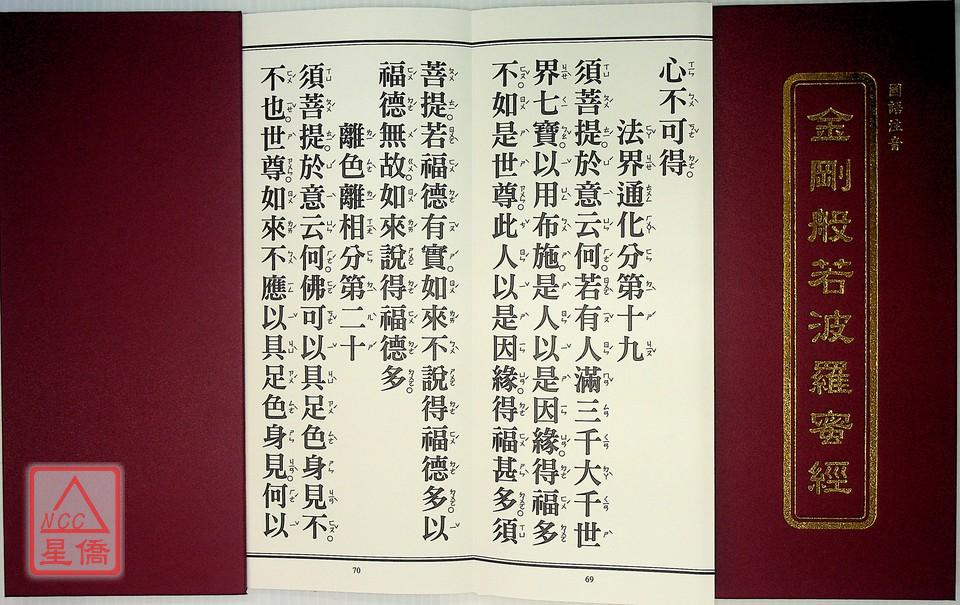 國語注音
金剛般若波羅蜜經
心不可得。
法界通化分第十九
須菩提。於意云何。若有人滿三千大千世
界七寶。以用布施。是人以是因緣。得福多
不。如是世尊。此人以是因緣。得福甚多。須
69
菩提。若福德有實。如來不說得福德多。以
福德無故。如來說得福德多。
離色離相分第二十
須菩提。於意云何。佛可以具足色身見不。
不也。世尊。如來不應以具足色身見。何以
70
NCC
星僑